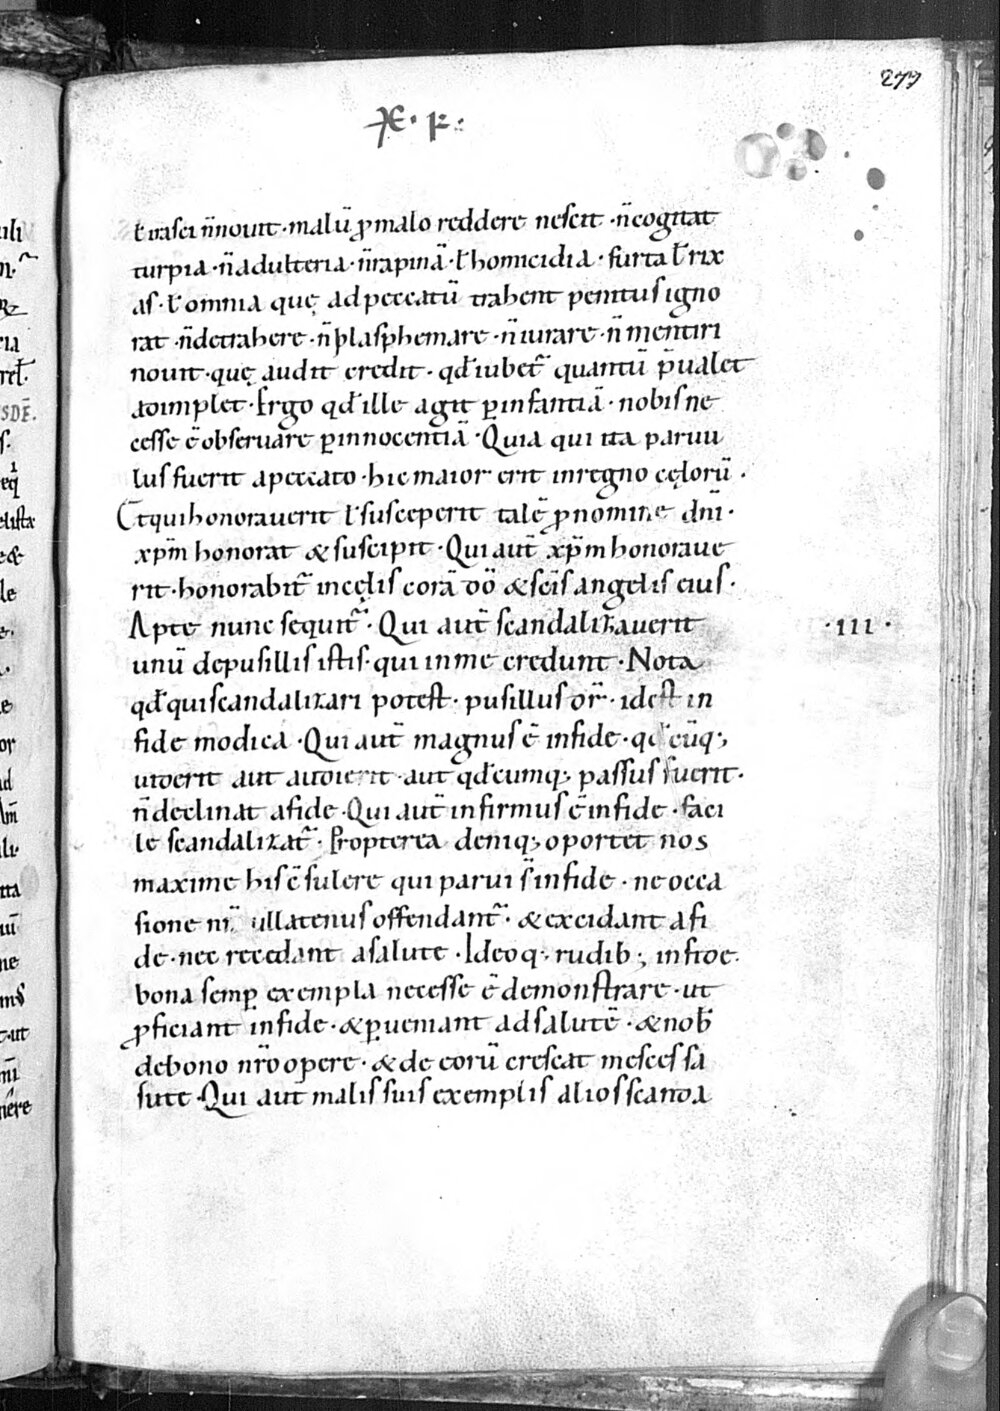 277
ƚ irasci n̄ nouit · malū ꝓ malo reddere nescit · n̄ cogitat
turpia · n̄ adulteria · n̄ rapinā · ƚ homicidia · furta ƚ rix
as · ƚ omnia quę ad peccatū trahent penitus igno
rat · n̄ detrahere · n̄ plasphemare · n̄ iurare · n̄ mentiri
nouit · quę audit credit · qđ iubet᷑ quantū p̄ualet
adimplet · Ergo qđ ille agit ꝑ infantiā · nobis ne
cesse ē obseruare ꝑ innocentiā · Quia qui ita paruu
lus fuerit a peccato · hic maior erit in regno cęlorū ·
Et qui honorauerit ƚ susceperit talē ꝓ nomine dn̄i ·
xp̄m honorat & suscipit · Qui aut̄ xp̄m honoraue
rit · honorabit᷑ in cęlis corā dō & sc̄is angelis eius ·
Apte nunc sequit᷑ · Qui aut̄ scandalizauerit
· III ·
unū de pusillis istis · qui in me credunt · Nota
qđ qui scandalizari potest · pusillus or̄ · id est in
fide modica · Qui aut̄ magnus ē in fide · qđ cūq;
uiderit aut audierit · aut qđcumq; passus fuerit ·
n̄ declinat a fide · Qui aut̄ infirmus ē in fide · faci
le scandalizat᷑ · Propterea deniq; oportet nos
maxime his c̄sulere qui parui s̄ in fide · ne occa
sione nr̄ ullatenus offendant᷑ · & excidant a fi
de · nec recedant a salute · Ideoq; rudib; in fide ·
bona semꝑ exempla necesse ē demonstrare · ut
ꝓficiant in fide · & ꝑueniant ad salutē · & nob̄
de bono nr̄o opere · & de eorū crescat mesces sa
lute · Qui aut malis suis exemplis alios scanda